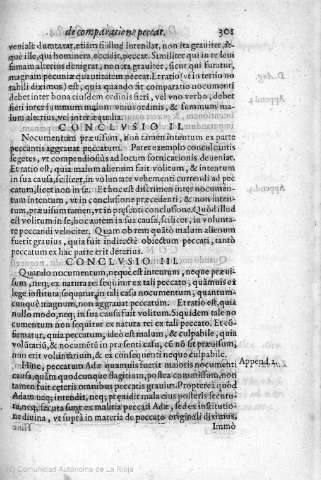 de comparatione peccat. 301
veniale duntaxat, etiam si illud intendat, non ita grauiter, &c
què ille, qui hominem occidit, peccat. Similiter qui in re leui
famam alterius denigrat, non ita grauiter, sicut qui furatur,
magnam pecuniæ quantitatem peccat. Et ratio
debet inter bona eiusdem ordinis fieri, vel vno verbo, debet
fieri inter summum malum vnius ordinis, & summum ma-
lum alterius, vel intra æqualia.
CONCLVSIO II.
Nocumentum præuisum, non tamen intentum ex parte
peccantis aggrauat peccatum. Patet exemplo conculcantis
segetes, vt compendiosius ad locum fornicationis deueniat.
Et ratio est, quia malum alienum fuit volitum, & intentum
in sua causa, scilicet, in voluntate vehementi currendi ad pec-
catum, licet non in se. Et hoc est discrimen inter nocumen-
tum intentum, vt in conclusione præcedenti, & non inten-
tum, præuisum tamen, vt in præsenti conclusione. Quòd illud
est volitum in se, hoc autem in sua causa, scilicet, in volunta-
te peccandi velociter. Quam ob rem quātò malum alienum
fuerit grauius, quia fuit indirectè obiectum peccati, tantò
peccatum ex hac parte erit deterius.
CONCLVSIO III.
Quando nocumentum, neque est intentum, neque præui-
sum, neq; ex natura rei sequitur ex tali peccato, quāuis ex
lege instituta, sequatur, in tali casu nocumentum, quantum-
cunque magnum, non aggrauat peccatum. Et ratio est, quia
nullo modo, neq; in sua causa fuit volitum. Siquidem tale no
cumentum non sequitur ex natura rei ex tali peccato. Et cō-
firmatur, quia peccatum, ideò est malum, & culpabile, quia
voluntariū, & nocumētū in præsenti casu, cū nō sit præuisum,
non erit voluntarium, & ex consequenti neque culpabile.
Hinc, peccatum Adæ quamuis fuerit maioris nocumenti
causa, quàm quodcunque flagitium, postea commissum, non
tamen fuit ceteris omnibus peccatis grauius. Propterea quòd
Adam neq; intendit, neq; præuidit mala eius posteris secutu-
ra, neq; secuta sunt ex malitia peccati Adæ, sed ex institutio-
ne diuina, vt suprà in materia de peccato originali diximus.
Hinc Immò
Append. 2.
(c) Comunidad Autónoma de La Rioja